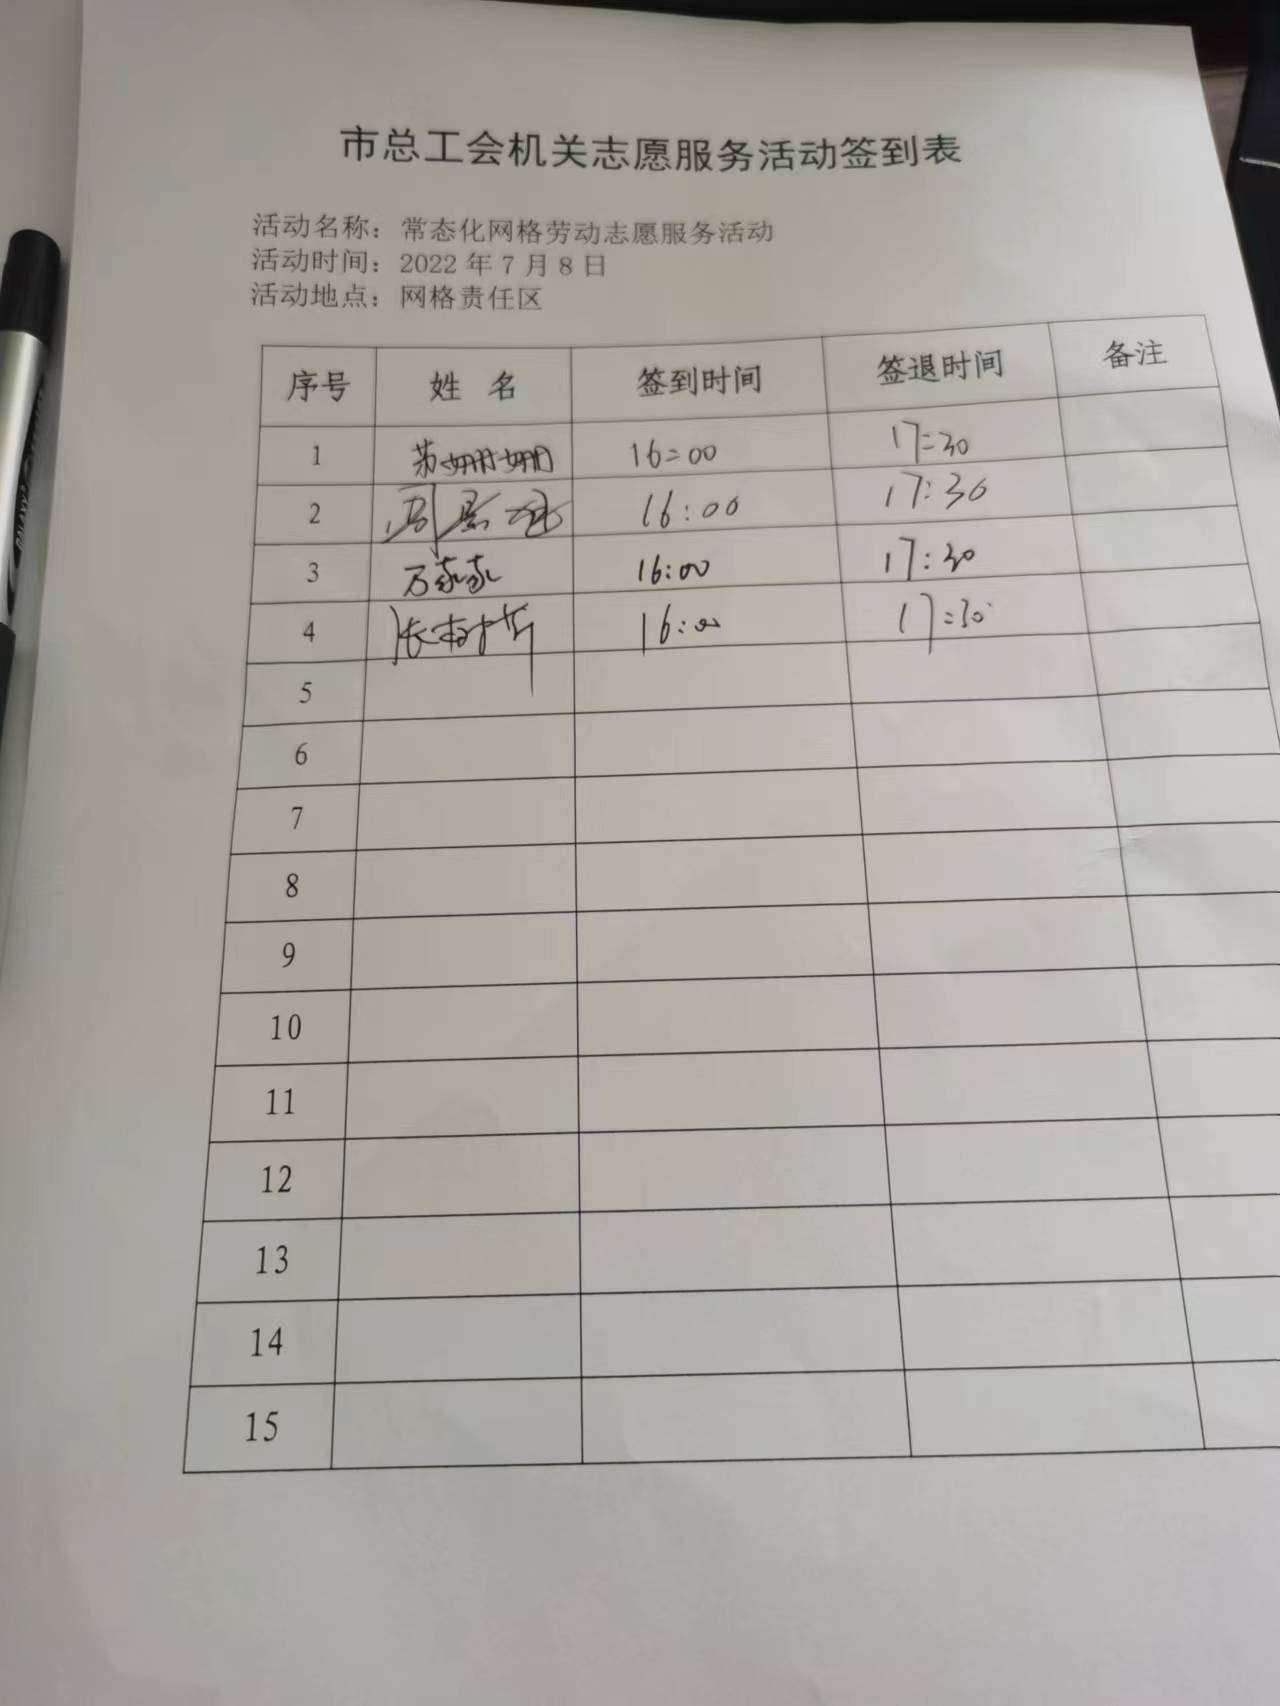 市总工会机关志愿服务活动签到表
活动名称：常态化网格劳动志愿服务活动
活动时间：2022年7月8日
活动地点：网格责任区
序号 姓 名 签到时间 签退时间 备注
1 苏姗姗 16:00 17:30
2 周 16:00 17:30
3 万家家 16:00 17:30
4 张 16:00 17:30
5
6
7
8
9
10
11
12
13
14
15